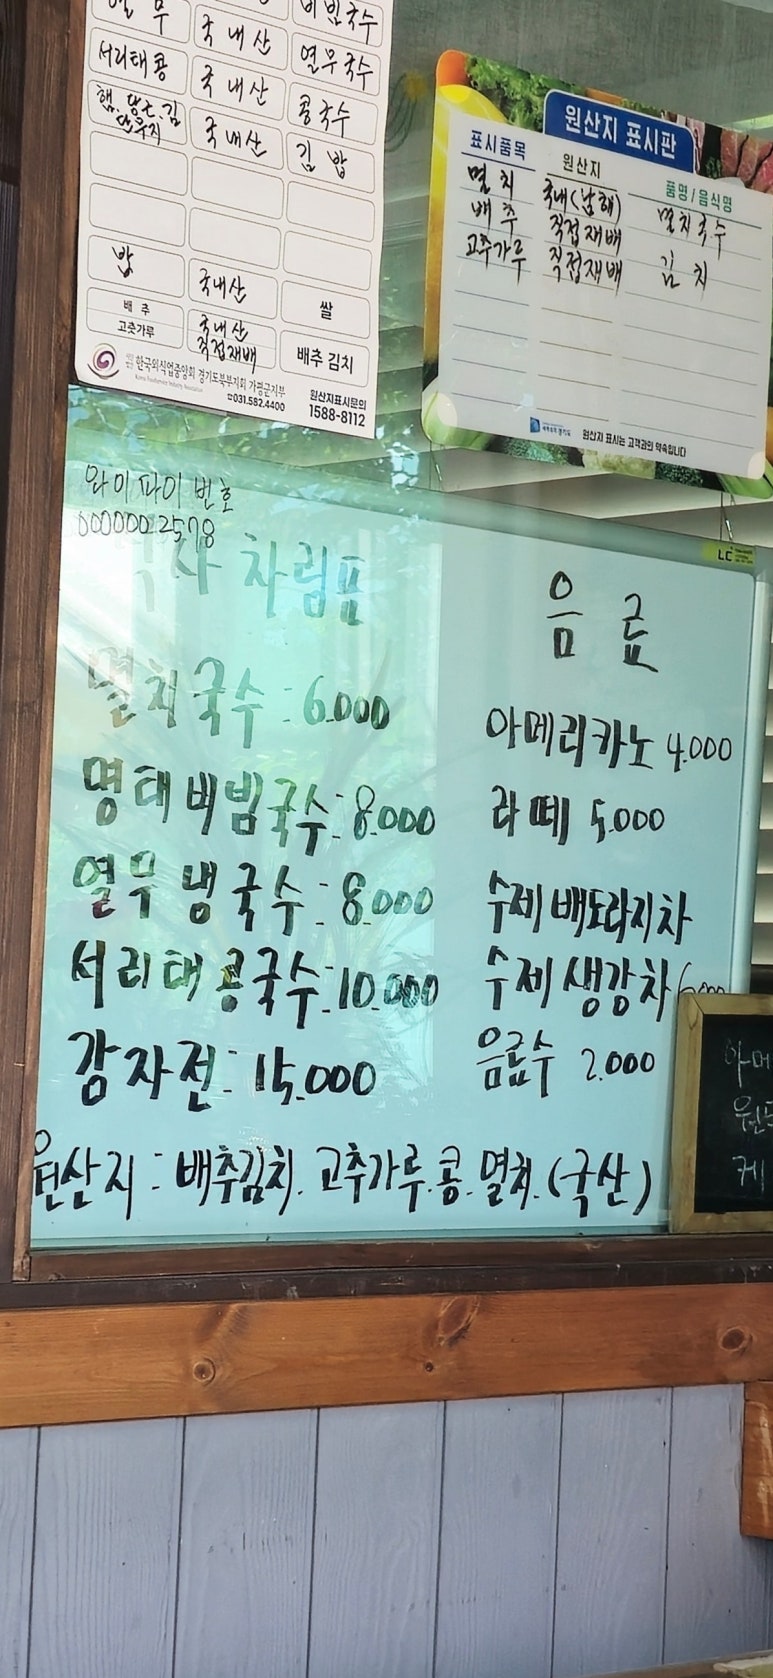 열무 국내산 비빔국수
서리태콩 국내산 열무국수
햄.당근.김 단무지 국내산 콩국수
김밥
밥 국내산 쌀
배추 국내산
고춧가루 직접재배 배추 김치
한국외식업중앙회 경기도북부지회 가평군지부
Korea Foodservice Industry Association
☎031.582.4400
원산지표시문의
1588-8112
원산지 표시판
표시품목 원산지 품명/음식명
멸치 국내(남해) 멸치국수
배추 직접재배
고추가루 직접재배 김치
원산지 표시는 고객과의 약속입니다
와이파이 번호
0000002578
차림표
멸치국수: 6.000
명태비빔국수: 8.000
열무냉국수: 8.000
서리태콩국수: 10.000
감자전: 15.000
음료
아메리카노 4.000
라떼 5.000
수제배도라지차
수제생강차 6.000
음료수 2.000
원산지: 배추김치. 고추가루.콩.멸치.(국산)
아메
케